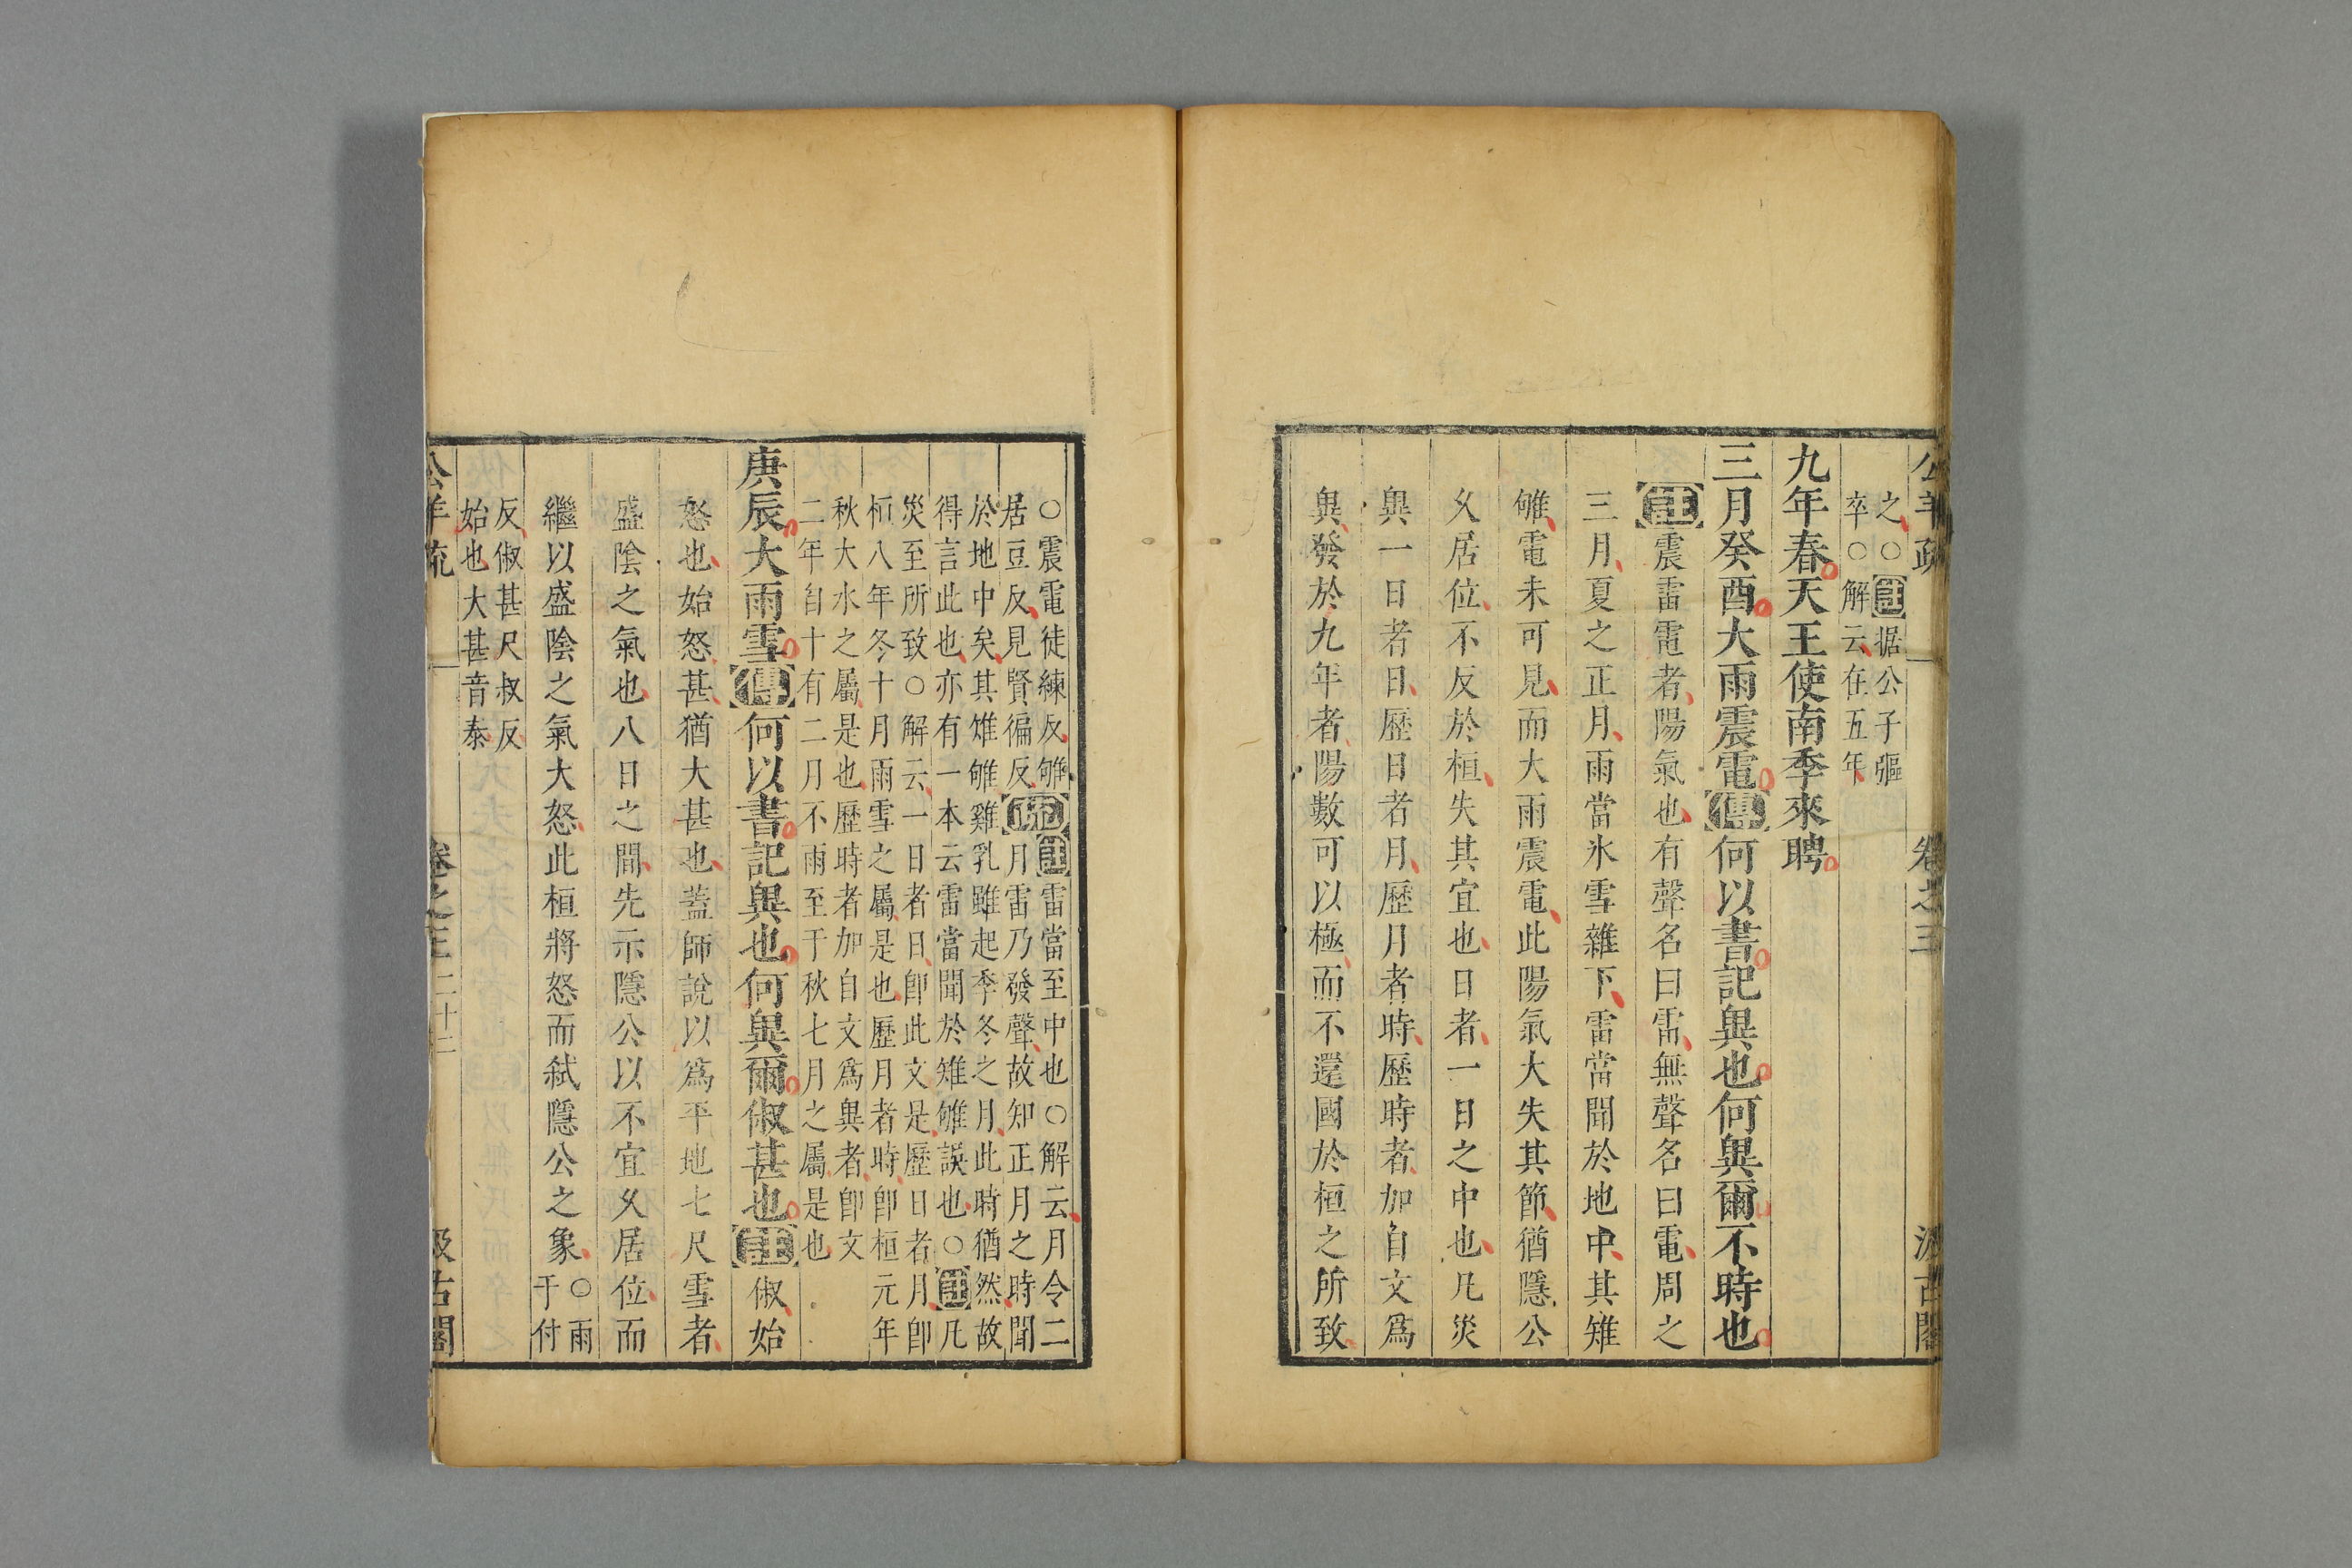 公羊疏 卷之三 汲古閣
之○註据公子彄
卒○解云在五年
九年春天王使南季來聘
三月癸酉大雨震電傳何以書記異也何異爾不時也
註震雷電者陽氣也有聲名曰雷無聲名曰電周之
三月夏之正月雨當氷雪雜下雷當聞於地中其雉
雊電未可見而大雨震電此陽氣大失其節猶隱公
乆居位不反於桓失其宜也日者一日之中也凡災
異一日者日歷日者月歷月者時歷時者加自文爲
異發於九年者陽數可以極而不還國於桓之所致
○震電徒練反雊
居豆反見賢徧反
疏註雷當至中也○解云月令二
月雷乃發聲故知正月之時聞
於地中矣其雉雊雞乳雖起季冬之月此時猶然故
得言此也亦有一本云雷當聞於雉雊誤也○註凡
災至所致○解云一日者日卽此文是歷日者月卽
桓八年冬十月雨雪之屬是也歷月者時卽桓元年
秋大水之屬是也歷時者加自文爲異者卽文
二年自十有二月不雨至于秋七月之屬是也
庚辰大雨雪傳何以書記異也何異爾俶甚也註俶始
怒也始怒甚猶大甚也蓋師說以爲平地七尺雪者
盛陰之氣也八日之間先示隱公以不宜乆居位而
繼以盛陰之氣大怒此桓將怒而弑隱公之象○雨
于付
反俶甚尺叔反
始也大甚音泰
公羊疏 卷之三 二十二 汲古閣